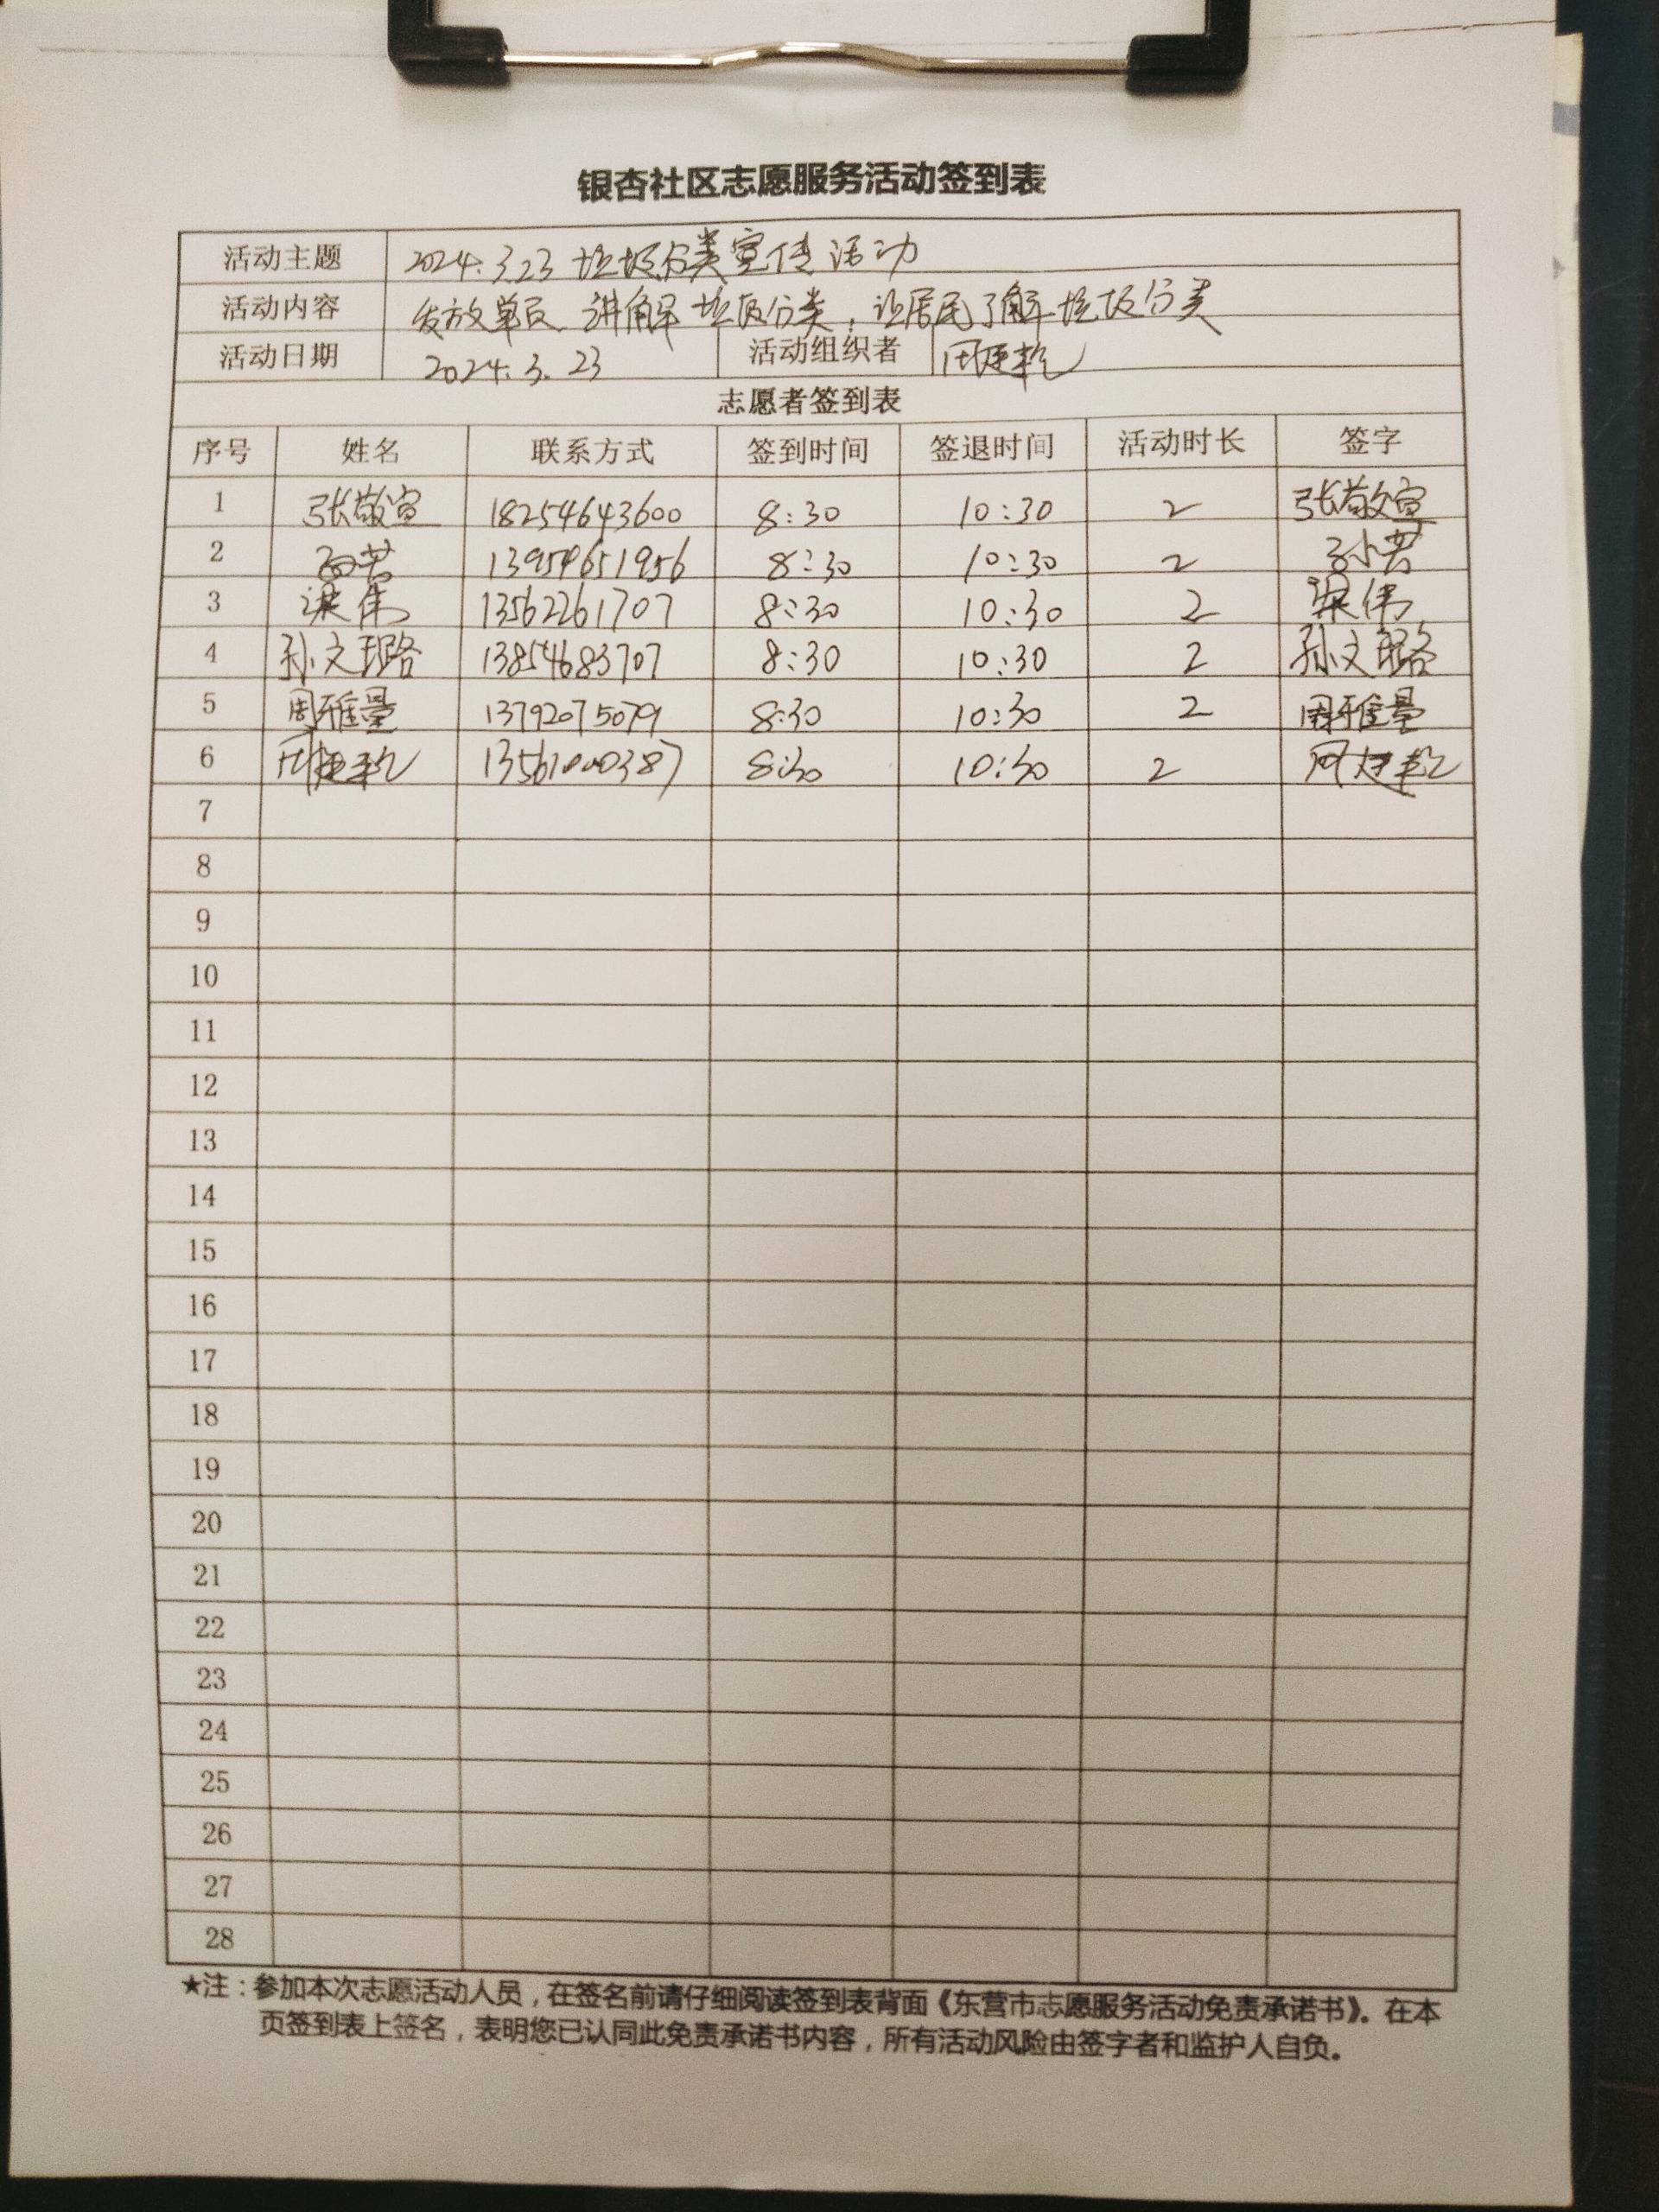 银杏社区志愿服务活动签到表
活动主题 2024.3.23 垃圾分类宣传活动
活动内容 发放单页、讲解垃圾分类,让居民了解垃圾分类
活动日期 2024.3.23 活动组织者
志愿者签到表
序号 姓名 联系方式 签到时间 签退时间 活动时长 签字
1 张敬宣 18254643600 8:30 10:30 2 张敬宣
2 8:30 10:30 2
3 梁伟 13562261707 8:30 10:30 2 梁伟
4 孙文璐 13854683707 8:30 10:30 2 孙文璐
5 周雅量 13792075079 8:30 10:30 2 周雅量
6 13561000387 8:30 10:30 2
7
8
9
10
11
12
13
14
15
16
17
18
19
20
21
22
23
24
25
26
27
28
★注:参加本次志愿活动人员,在签名前请仔细阅读签到表背面《东营市志愿服务活动免责承诺书》。在本
页签到表上签名,表明您已认同此免责承诺书内容,所有活动风险由签字者和监护人自负。